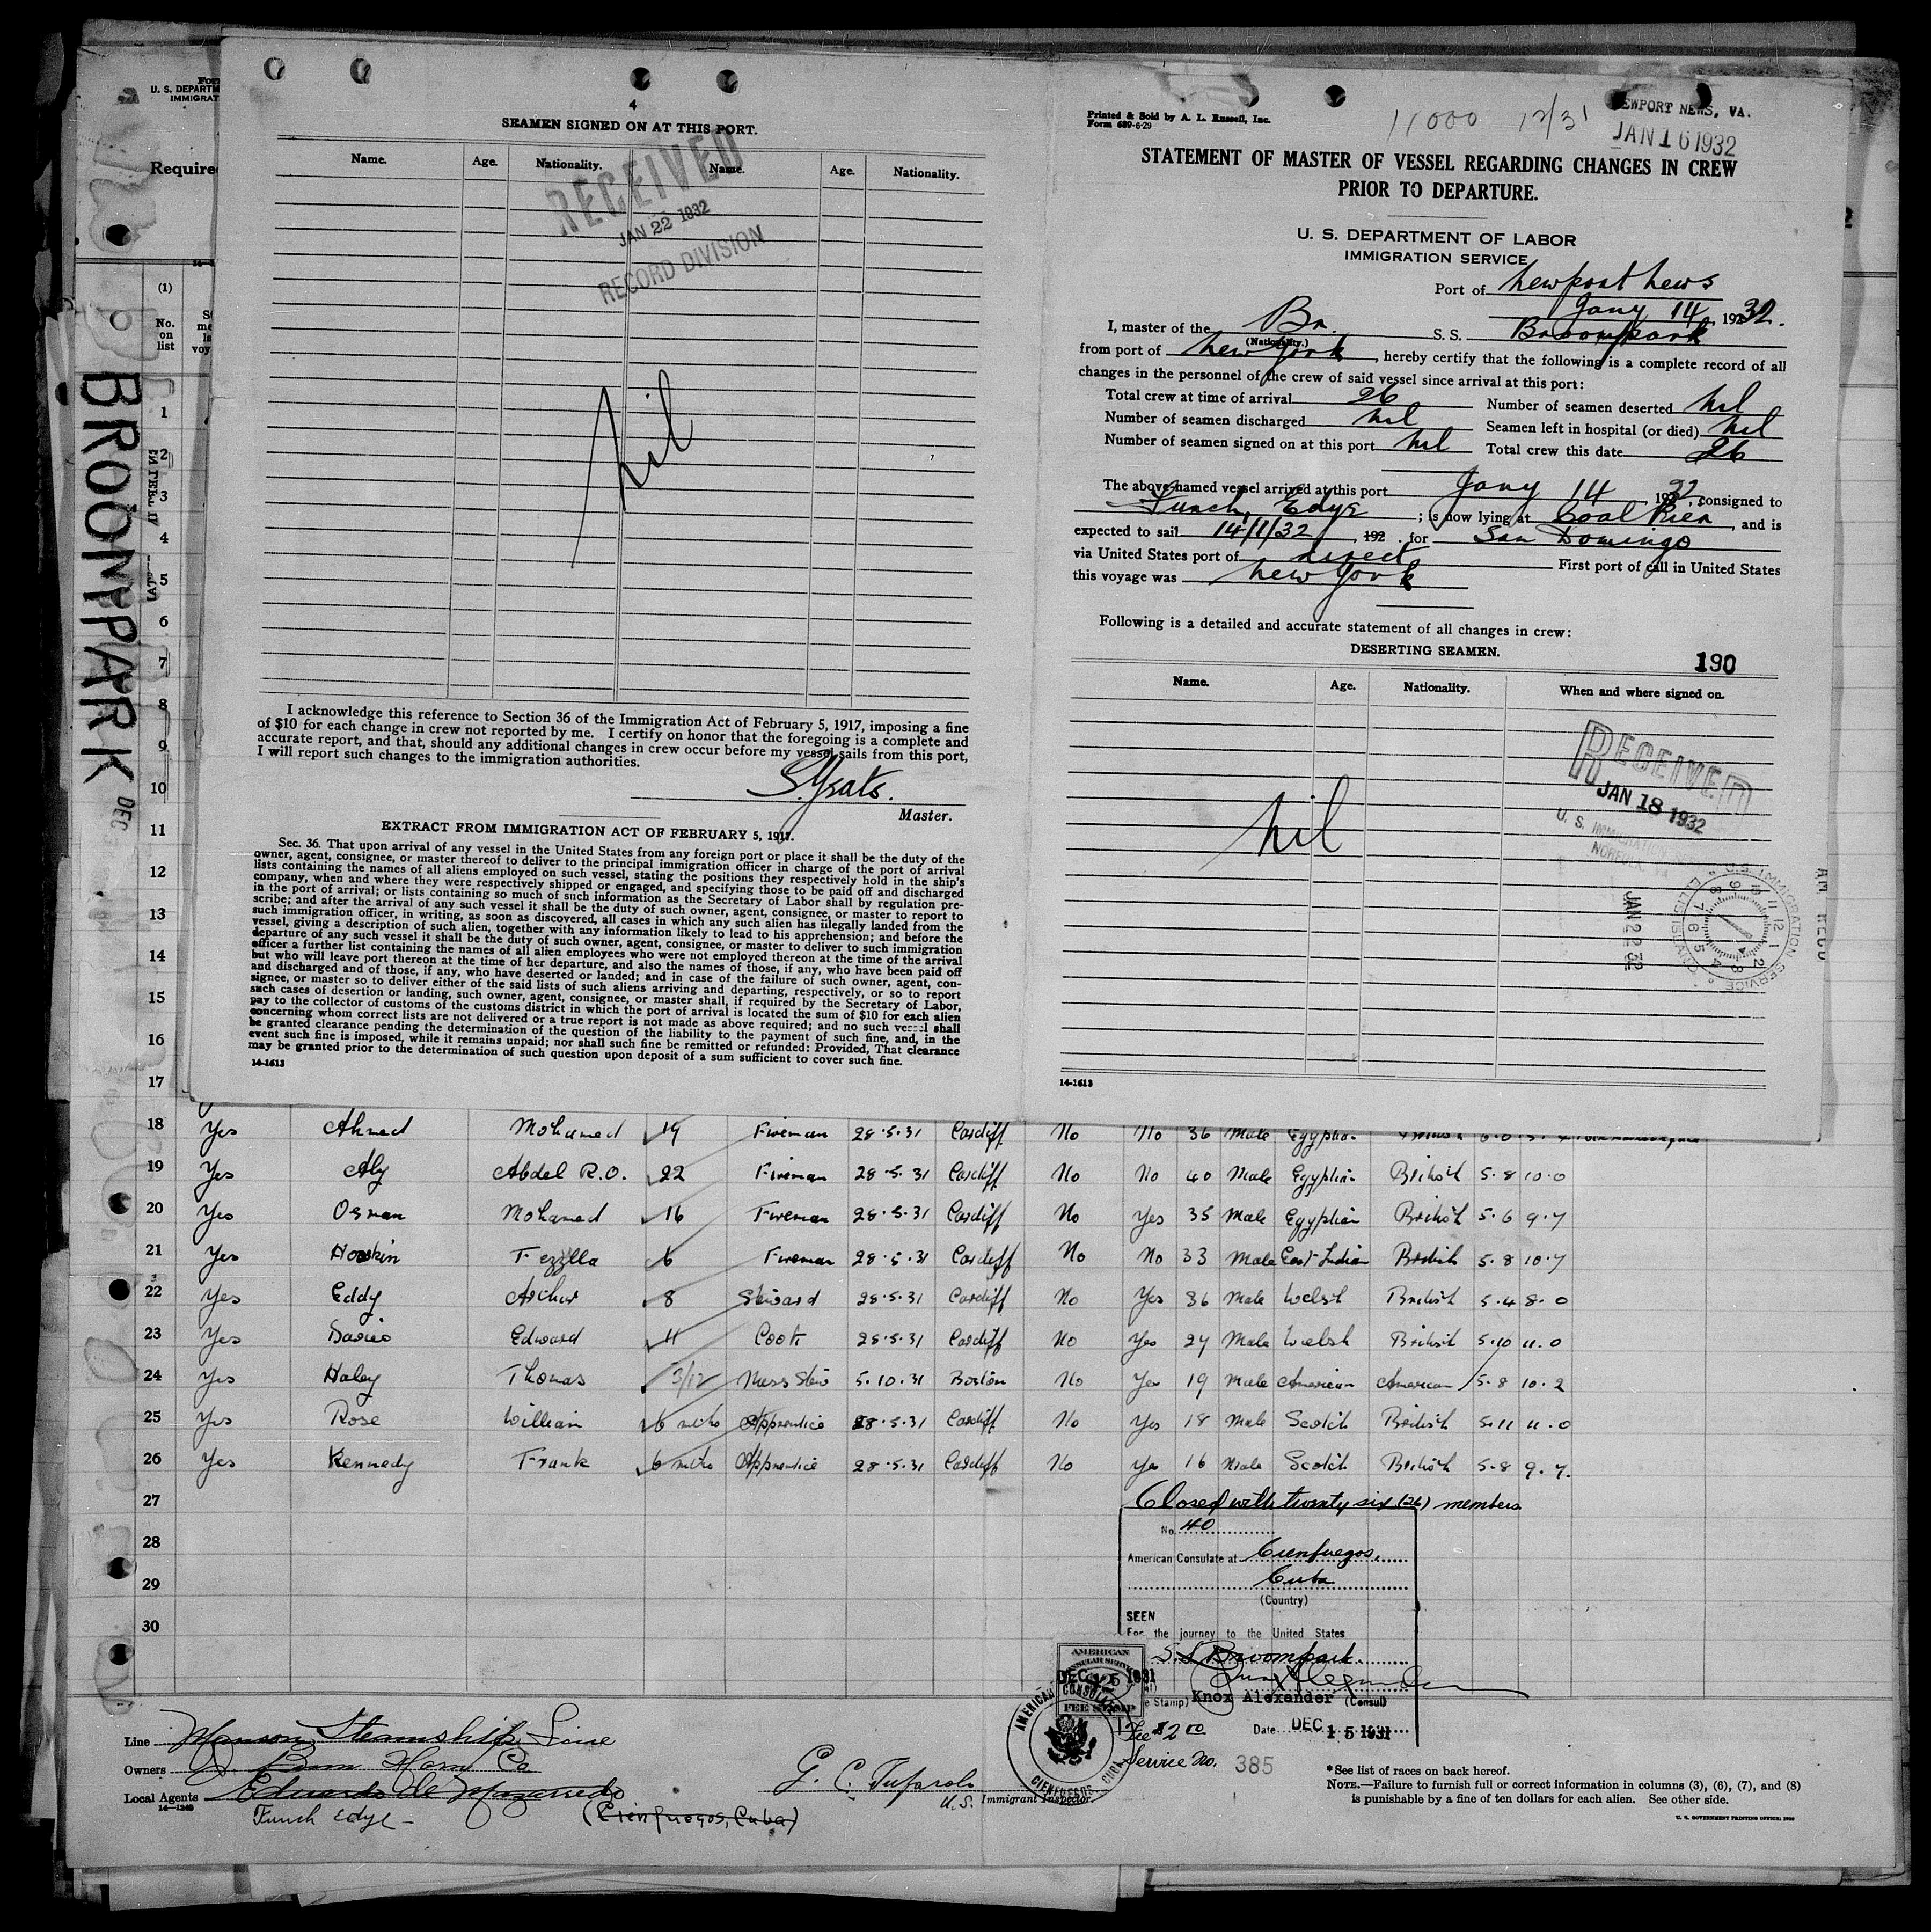 For
U. S. DEPARTM
IMMIGRAT
Require
(1)
No.
on
list
BROOMPARK
DEC
1
2
3
4
5
6
7
8
9
10
11
12
13
14
15
16
17
4
SEAMEN SIGNED ON AT THIS PORT.
Name. Age. Nationality. Name. Age. Nationality.
RECEIVED
JAN 22 1932
RECORD DIVISION
nil
I acknowledge this reference to Section 36 of the Immigration Act of February 5, 1917, imposing a fine
of $10 for each change in crew not reported by me. I certify on honor that the foregoing is a complete and
accurate report, and that, should any additional changes in crew occur before my vessel sails from this port,
I will report such changes to the immigration authorities.
Master.
EXTRACT FROM IMMIGRATION ACT OF FEBRUARY 5, 1917.
Sec. 36. That upon arrival of any vessel in the United States from any foreign port or place it shall be the duty of the
owner, agent, consignee, or master thereof to deliver to the principal immigration officer in charge of the port of arrival
lists containing the names of all aliens employed on such vessel, stating the positions they respectively hold in the ship's
company, when and where they were respectively shipped or engaged, and specifying those to be paid off and discharged
in the port of arrival; or lists containing so much of such information as the Secretary of Labor shall by regulation pre-
scribe; and after the arrival of any such vessel it shall be the duty of such owner, agent, consignee, or master to report to
such immigration officer, in writing, as soon as discovered, all cases in which any such alien has illegally landed from the
vessel, giving a description of such alien, together with any information likely to lead to his apprehension; and before the
departure of any such vessel it shall be the duty of such owner, agent, consignee, or master to deliver to such immigration
officer a further list containing the names of all alien employees who were not employed thereon at the time of the arrival
but who will leave port thereon at the time of her departure, and also the names of those, if any, who have been paid off
and discharged and of those, if any, who have deserted or landed; and in case of the failure of such owner, agent, con-
signee, or master so to deliver either of the said lists of such aliens arriving and departing, respectively, or so to report
such cases of desertion or landing, such owner, agent, consignee, or master shall, if required by the Secretary of Labor,
pay to the collector of customs of the customs district in which the port of arrival is located the sum of $10 for each alien
concerning whom correct lists are not delivered or a true report is not made as above required; and no such vessel shall
be granted clearance pending the determination of the question of the liability to the payment of such fine, and, in the
event such fine is imposed, while it remains unpaid; nor shall such fine be remitted or refunded: Provided, That clearance
may be granted prior to the determination of such question upon deposit of a sum sufficient to cover such fine.
14-1613
Printed & Sold by A. L. Russell, Inc.
Form 689-6-29
11000 12/31
NEWPORT NEWS, VA.
JAN 16 1932
STATEMENT OF MASTER OF VESSEL REGARDING CHANGES IN CREW
PRIOR TO DEPARTURE.
U. S. DEPARTMENT OF LABOR
IMMIGRATION SERVICE
Port of Newport News
Jany 14, 1932.
I, master of the Br. S. S. Broompark
(Nationality.)
from port of New York, hereby certify that the following is a complete record of all
changes in the personnel of the crew of said vessel since arrival at this port:
Total crew at time of arrival 26 Number of seamen deserted nil
Number of seamen discharged nil Seamen left in hospital (or died) nil
Number of seamen signed on at this port nil Total crew this date 26
The above-named vessel arrived at this port Jany 14 1932, consigned to
Funch, Edye; is now lying at Coal Pier, and is
expected to sail 14/1/32, 192 . for San Domingo
via United States port of direct First port of call in United States
this voyage was New York
Following is a detailed and accurate statement of all changes in crew:
DESERTING SEAMEN.
190
Name. Age. Nationality. When and where signed on.
RECEIVED
JAN 18 1932
U. S. IMMIGRATION SERVICE
NORFOLK, VA
nil
U.S. IMMIGRATION SERVICE
JAN 22 32
14-1613
18 Yes Ahmed Mohamed 19 Fireman 28.5.31 Cardiff No No 36 Male Egyptian
19 Yes Aly Abdel R.O. 22 Fireman 28.5.31 Cardiff No No 40 Male Egyptian British 5.8 10.0
20 Yes Osman Mohamed 16 Fireman 28.5.31 Cardiff No Yes 35 Male Egyptian British 5.6 9.7
21 Yes Hoskin Fezzlla 6 Fireman 28.5.31 Cardiff No No 33 Male East Indian British 5.8 10.7
22 Yes Eddy Arthur 8 Steward 28.5.31 Cardiff No Yes 36 Male Welsh British 5.4 8.0
23 Yes Davies Edward 11 Cook 28.5.31 Cardiff No Yes 27 Male Welsh British 5.10 11.0
24 Yes Haley Thomas 3/12 Mess Stew 5.10.31 Boston No Yes 19 Male American American 5.8 10.2
25 Yes Rose William 6 mths Apprentice 28.5.31 Cardiff No Yes 18 Male Scotch British 5.11 11.0
26 Yes Kennedy Frank 6 mths Apprentice 28.5.31 Cardiff No Yes 16 Male Scotch British 5.8 9.7.
27
28
29
30
Closed with twenty six (26) members
No. 40
American Consulate at Cienfuegos,
Cuba
(Country)
SEEN
For the journey to the United States
S.S. Broompark
AMERICAN
CONSULAR SERVICE
DEC 15 1931
FEE STAMP
e Stamp) Knox Alexander (Consul)
Fee $2.00 Date DEC 15 1931
Service No. 385
AMERICAN CONSULATE
CIENFUEGOS CUBA
Line Munson Steamship Line
Owners
Local Agents Eduardo de Mazarredo
14-1240
Funch Edye -
(Cienfuegos, Cuba)
U.S. Immigrant Inspector.
*See list of races on back hereof.
NOTE.—Failure to furnish full or correct information in columns (3), (6), (7), and (8)
is punishable by a fine of ten dollars for each alien. See other side.
U. S. GOVERNMENT PRINTING OFFICE: 1930